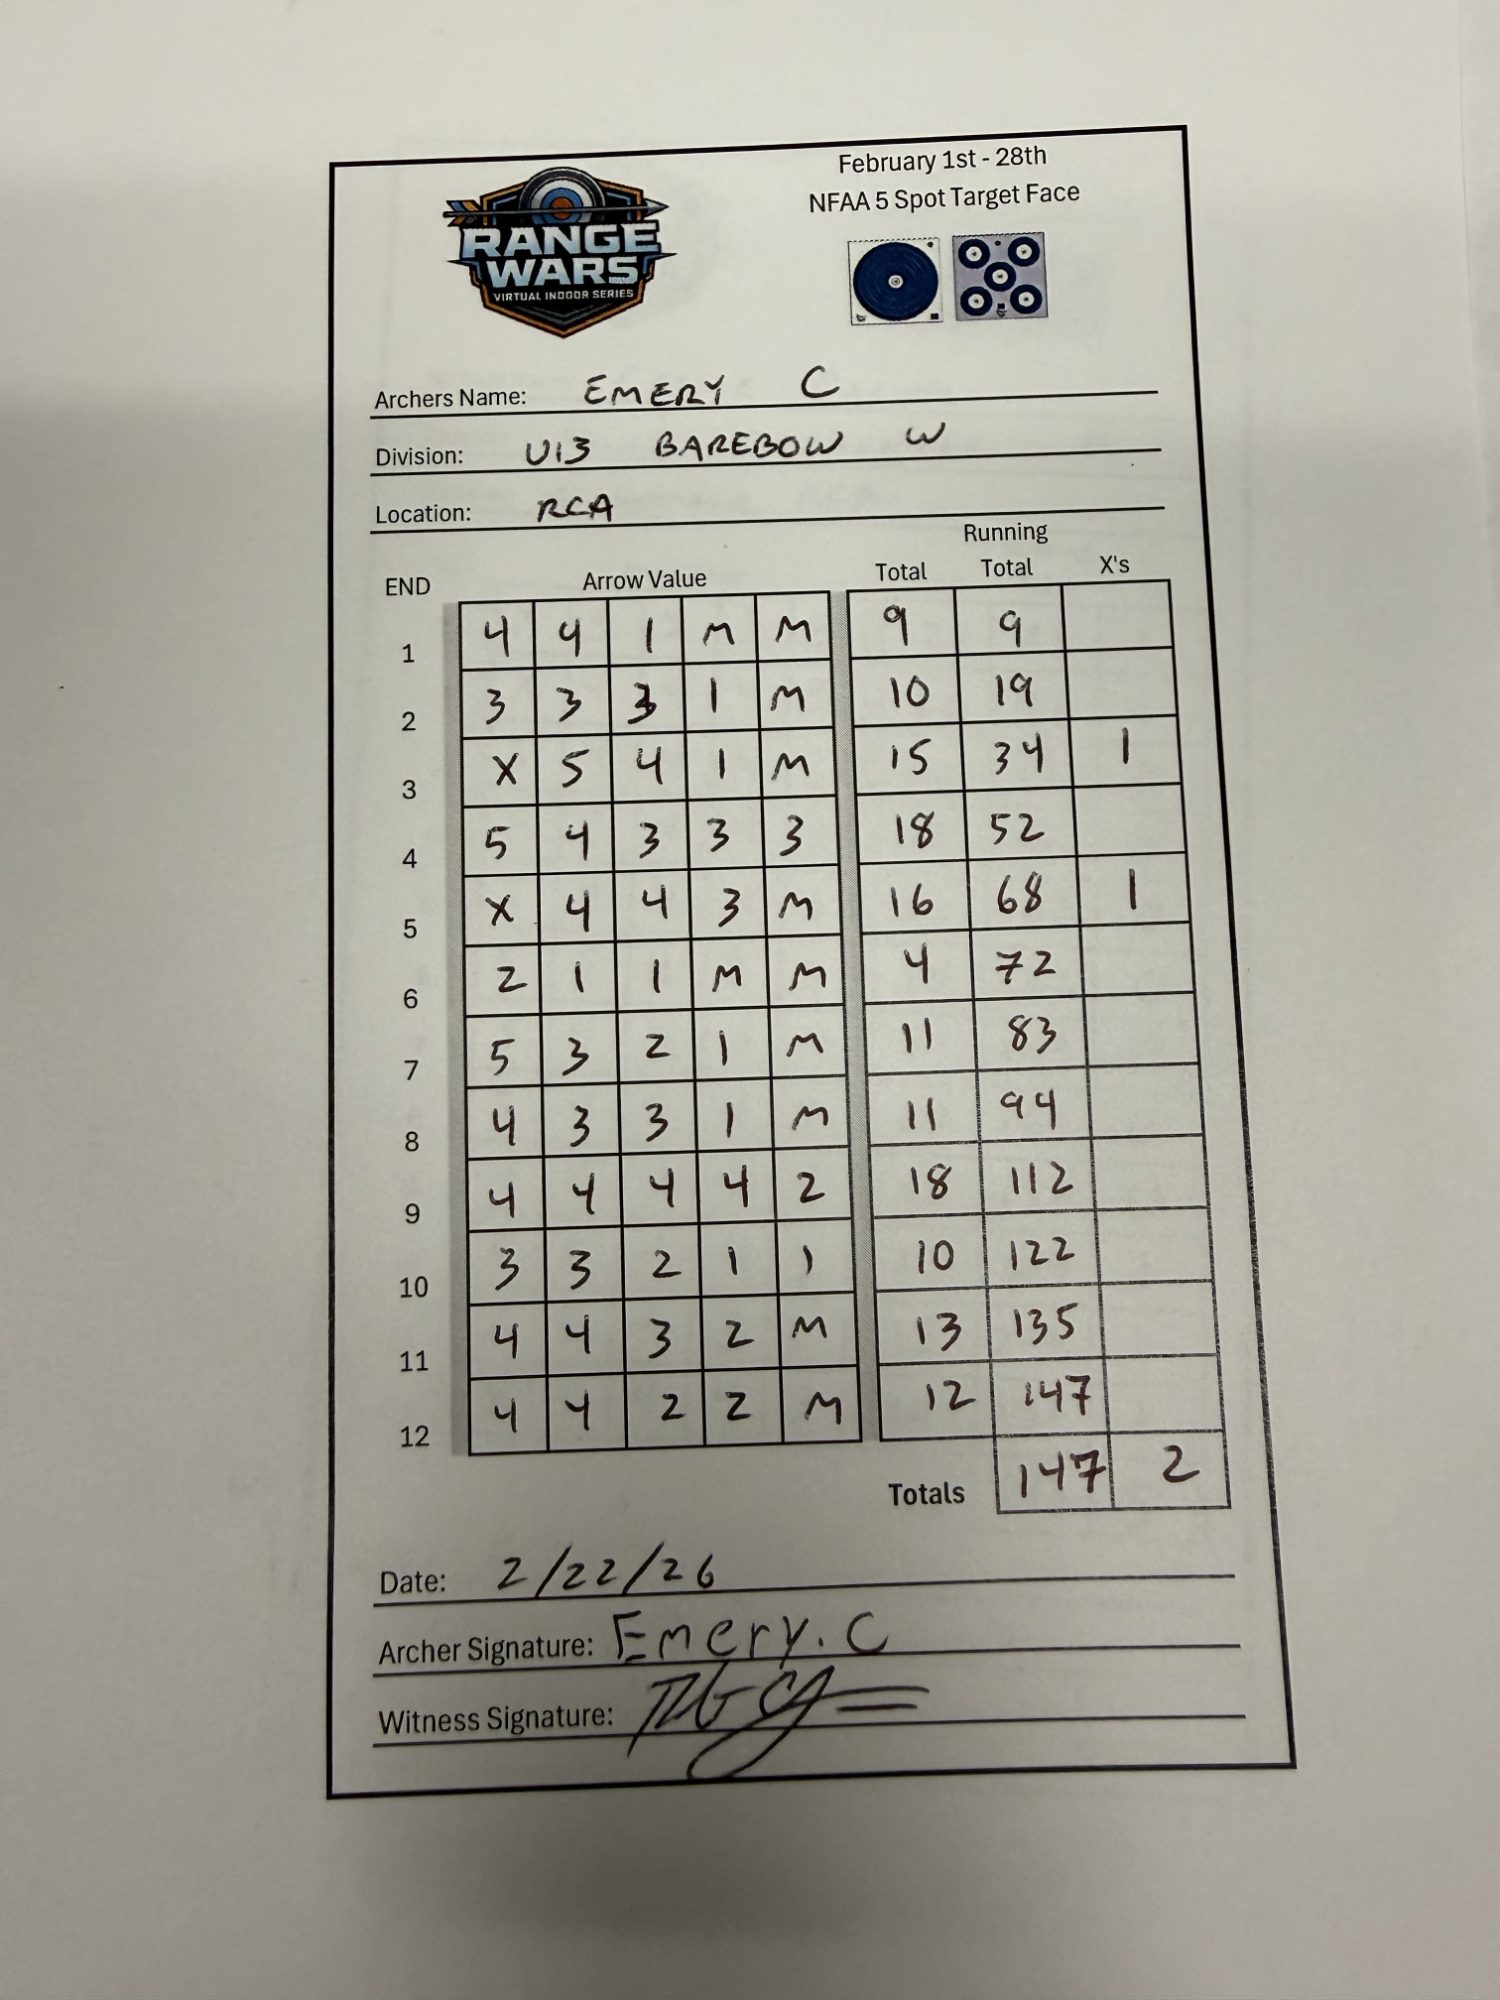 RANGE
WARS
VIRTUAL INDOOR SERIES
February 1st - 28th
NFAA 5 Spot Target Face
Archers Name: EMERY C
Division: U13 BAREBOW W
Location: RCA
END Arrow Value Total Running Total X's
1 4 4 1 M M 9 9
2 3 3 3 1 M 10 19
3 X 5 4 1 M 15 34 1
4 5 4 3 3 3 18 52
5 X 4 4 3 M 16 68 1
6 2 1 1 M M 4 72
7 5 3 2 1 M 11 83
8 4 3 3 1 M 11 94
9 4 4 4 4 2 18 112
10 3 3 2 1 1 10 122
11 4 4 3 2 M 13 135
12 4 4 2 2 M 12 147
Totals 147 2
Date: 2/22/26
Archer Signature: Emery. C
Witness Signature: